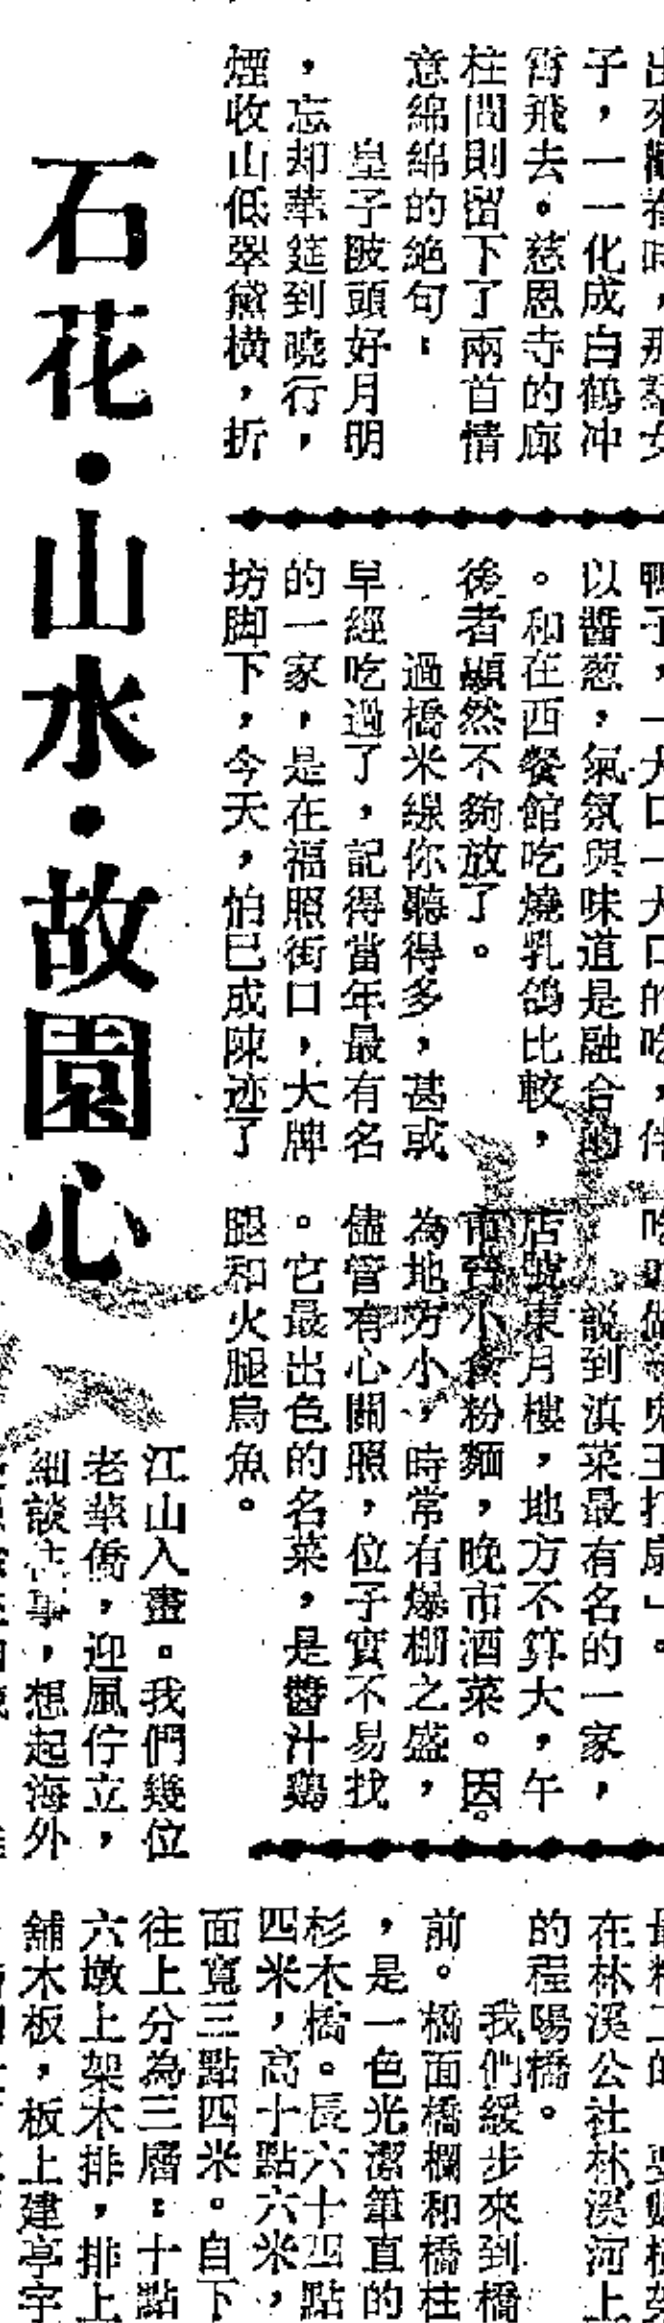 子，一一化成白鶴冲
霄飛去。慈恩寺的廊
柱間則留下了兩首情
意綿綿的絶句：
皇子陂頭好月明
，忘却華筵到曉行，
煙收山低翠黛橫，折
以醬葱，氣氛與味道是融合的
。和在西餐館吃燒乳鴿比較，
後者顯然不夠放了。
過橋米線你聽得多，甚或
早經吃過了，記得當年最有名
的一家，是在福照街口，大牌
坊脚下，今天，怕已成陳迹了
說到滇菜最有名的一家，
店號東月樓，地方不算大，午
市賣小食粉麵，晚市酒菜。因
為地方小，時常有爆棚之盛，
儘管有心關照，位子實不易找
。它最出色的名菜，是醬汁鷄
腿和火腿烏魚。
石花·山水·故園心
江山入畫。我們幾位
老華僑，迎風佇立，
細談往事，想起海外
在林溪公社林溪河上
的程陽橋。
我們緩步來到橋
前。橋面橋欄和橋柱
，是一色光潔筆直的
杉木橋。長六十四點
四米，高十點六米，
面寬三點四米。自下
往上分為三層：十點
六墩上架木排，排上
舖木板，板上建亭宇